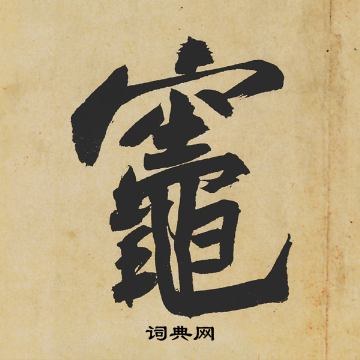 竈
词典网